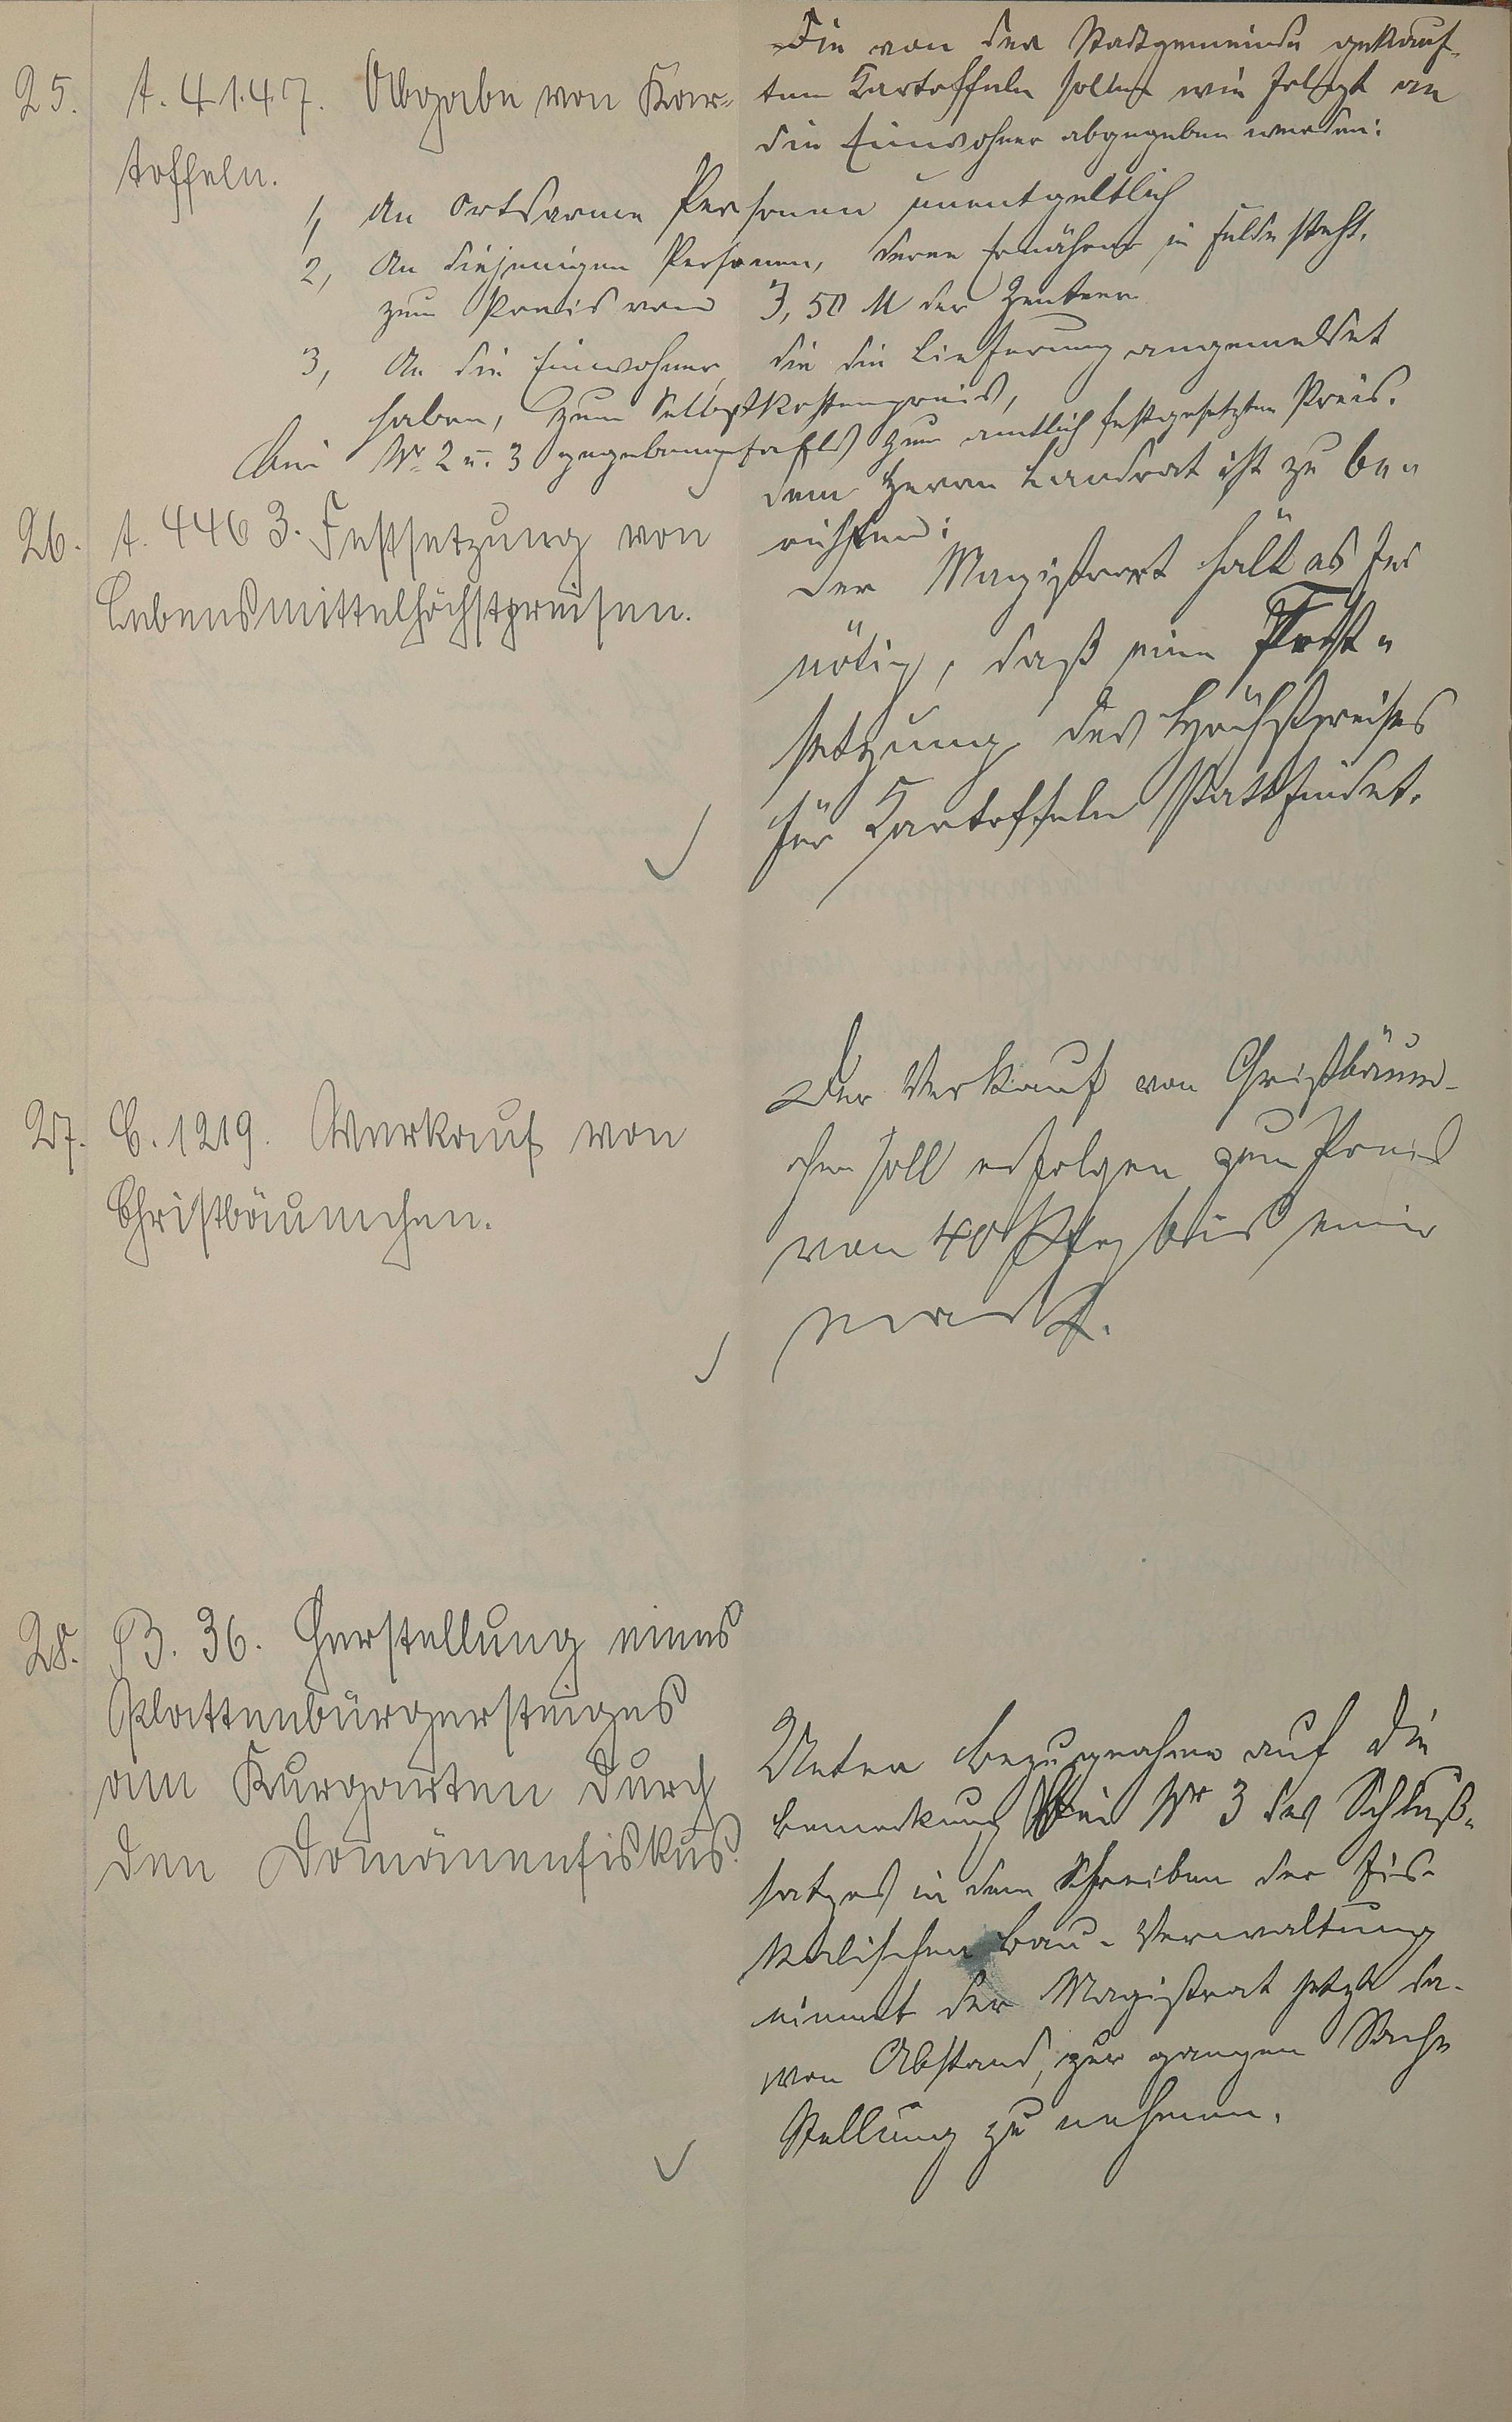 25. A. 4147. Abgabe von Kar-
toffeln.
Die von der Stadtgemeinde gekauf-
ten Kartoffeln sollen wie folgt an
die Einwohner abgegeben werden:
1, An ortsarme Personen unentgeltlich
2, An diejenigen Personen, deren Ernährer in Felde steht,
zum Preis von 3,50 M der Zentner
3, An die Einwohner, die die Lieferung angemeldet
haben, zum Selbstkostenpreis,
bei Nr. 2 u. 3 gegebenenfalls zum amtlich festgesetzten Preis.
26. A. 4463. Festsetzung von
Lebensmittelhöchstpreisen.
dem Herrn Landrat ist zu be-
richten:
der Magistrat hält es für
nötig, daß eine Fest-
setzung des Höchstpreises
für Kartoffeln stattfindet.
27. C. 1219. Verkauf von
Christbäumchen.
Der Verkauf von Christbäum-
chen soll erfolgen zum Preis
von 40 Pfg bis einer
Mark.
28. B. 36. Herstellung eines
Plattenbürgersteiges
am Kurgarten durch
den Domänenfiskus.
Unter Bezugnahme auf die
Bemerkung bei Nr 3 des Schluß-
satzes in dem Schreiben der fis-
kalischen Bau-Verwaltung
nimmt der Magistrat jetzt da-
von Abstand, zur ganzen Sache
Stellung zu nehmen.